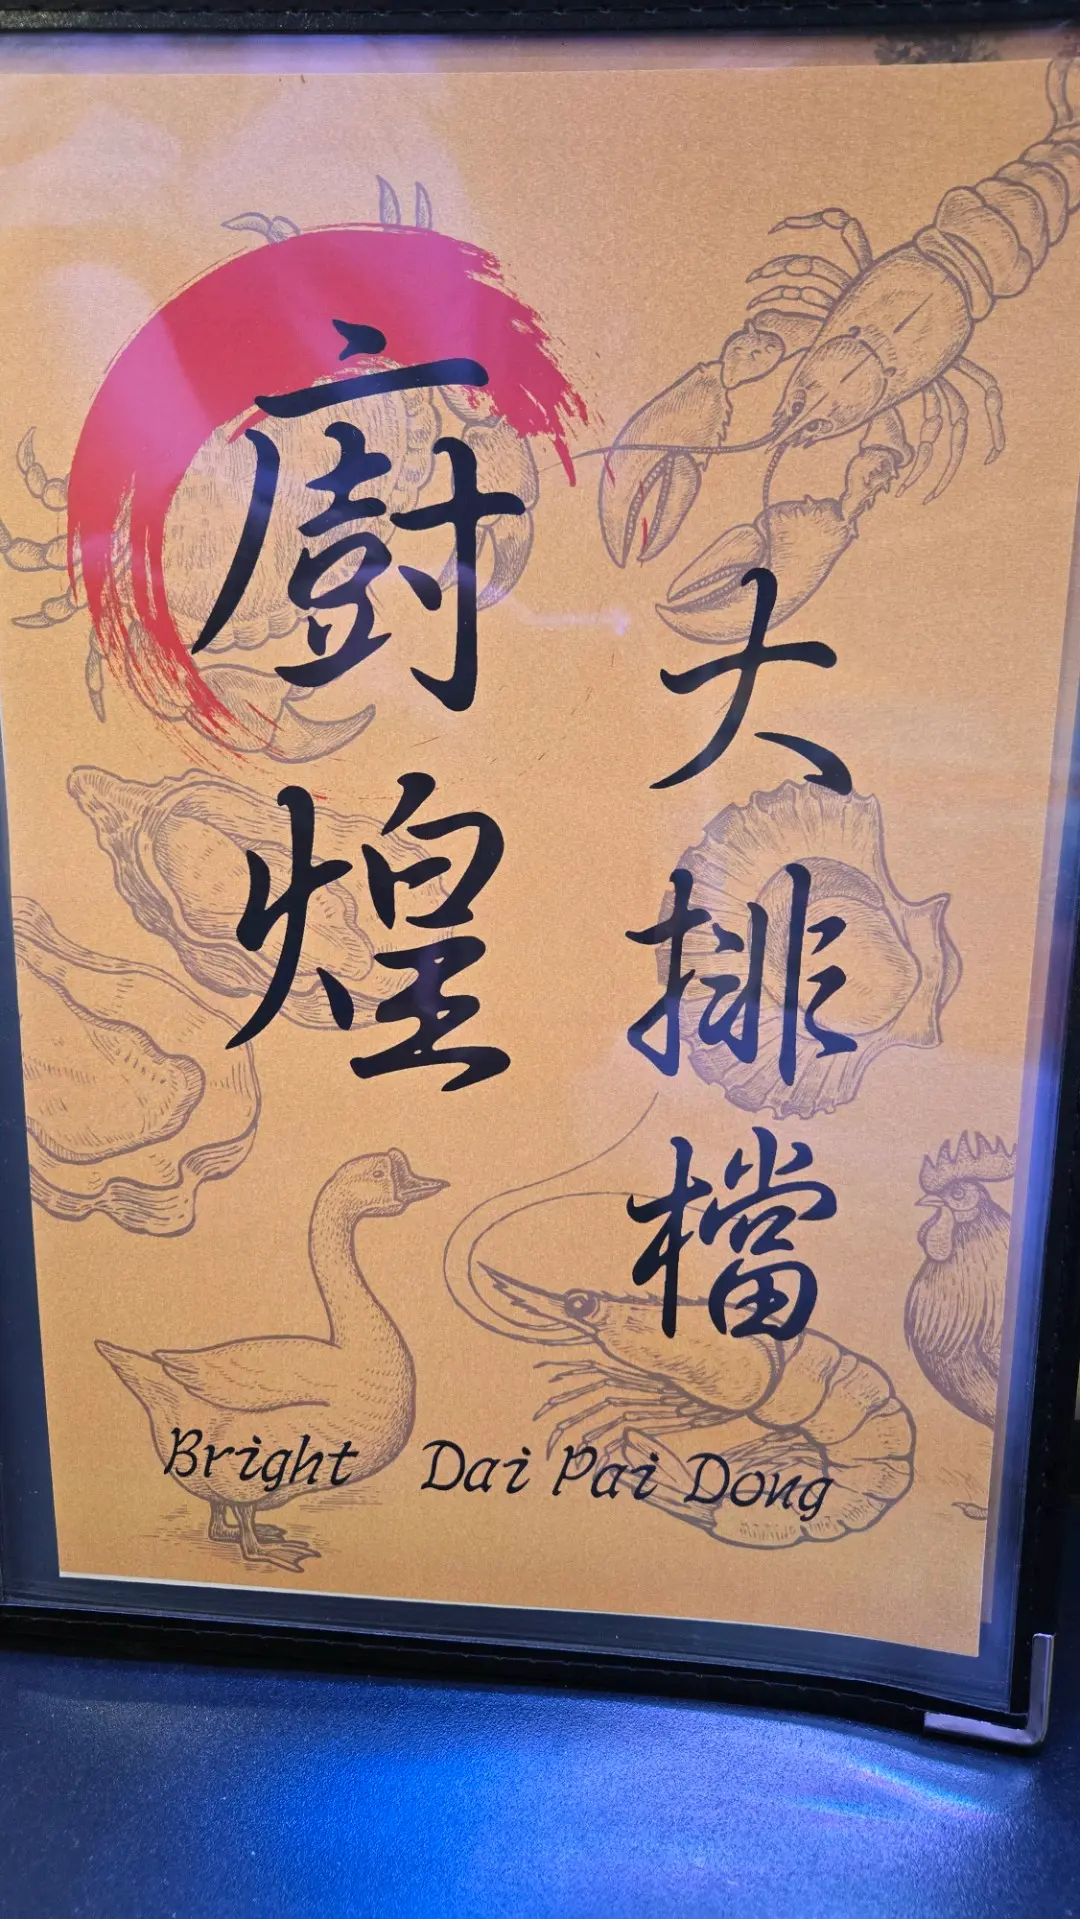 廚煌
大排檔
Bright Dai Pai Dong